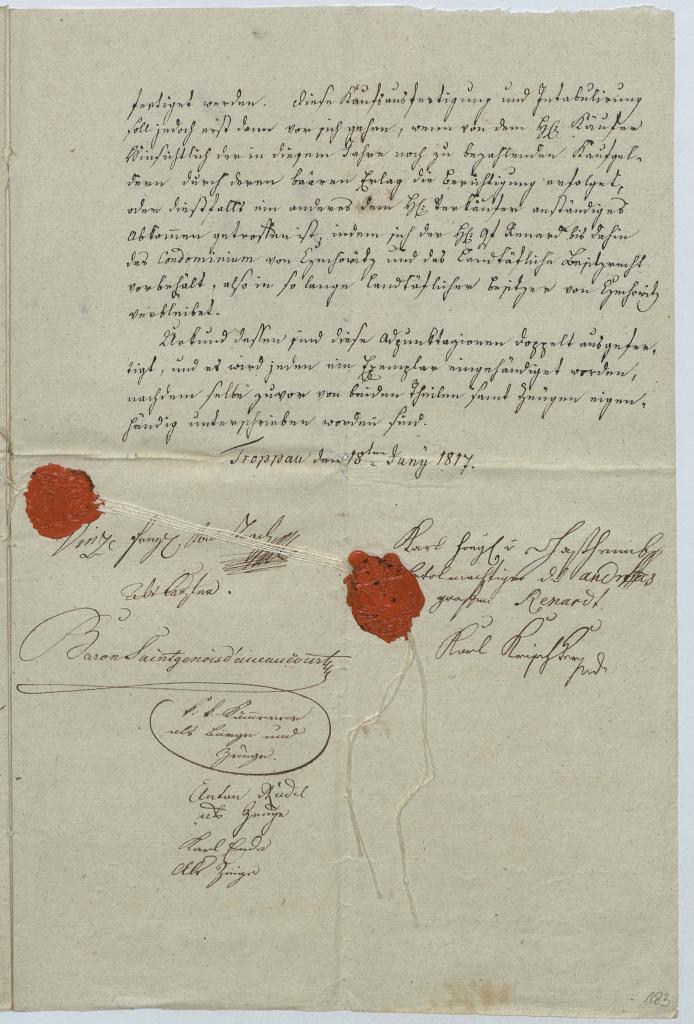 fertiget werden. Diese Kaufsausfertigung und Intabulirung
soll jedoch erst dann vor sich gehen, wenn von dem H: Käufer
Hinsichtlich der in diesem Jahre noch zu bezahlenden Kaufgel-
dern durch deren baaren Erlag die Berichtigung erfolget,
oder diesfalls ein anderes dem H: Verkäufer anständiges
Abkommen getroffen ist, indem sich der H: Gf Renard bis dahin
das Condominium von und das Landtäfliche Besitzrecht
vorbehält, also in so lange Landtäflicher Besitzer von
verbleibet.
Urkund dessen sind diese Adpunktazionen doppelt ausgefer-
tigt, und es wird jeden ein Exemplar eingehändiget worden,
nachdem selbe zuvor von beiden Theilen samt Zeugen eigen-
händig unterschrieben worden sind.
Troppau den 18ten Juny 1817.
Karl
Andreas
grafen Renardt.
Karl
als
Baron Saintgenois d'aneaucourt
k. k. Kämmerer
als Bürge und
Zeuge.
Anton
als Zeuge
Karl
Als Zeuge
183